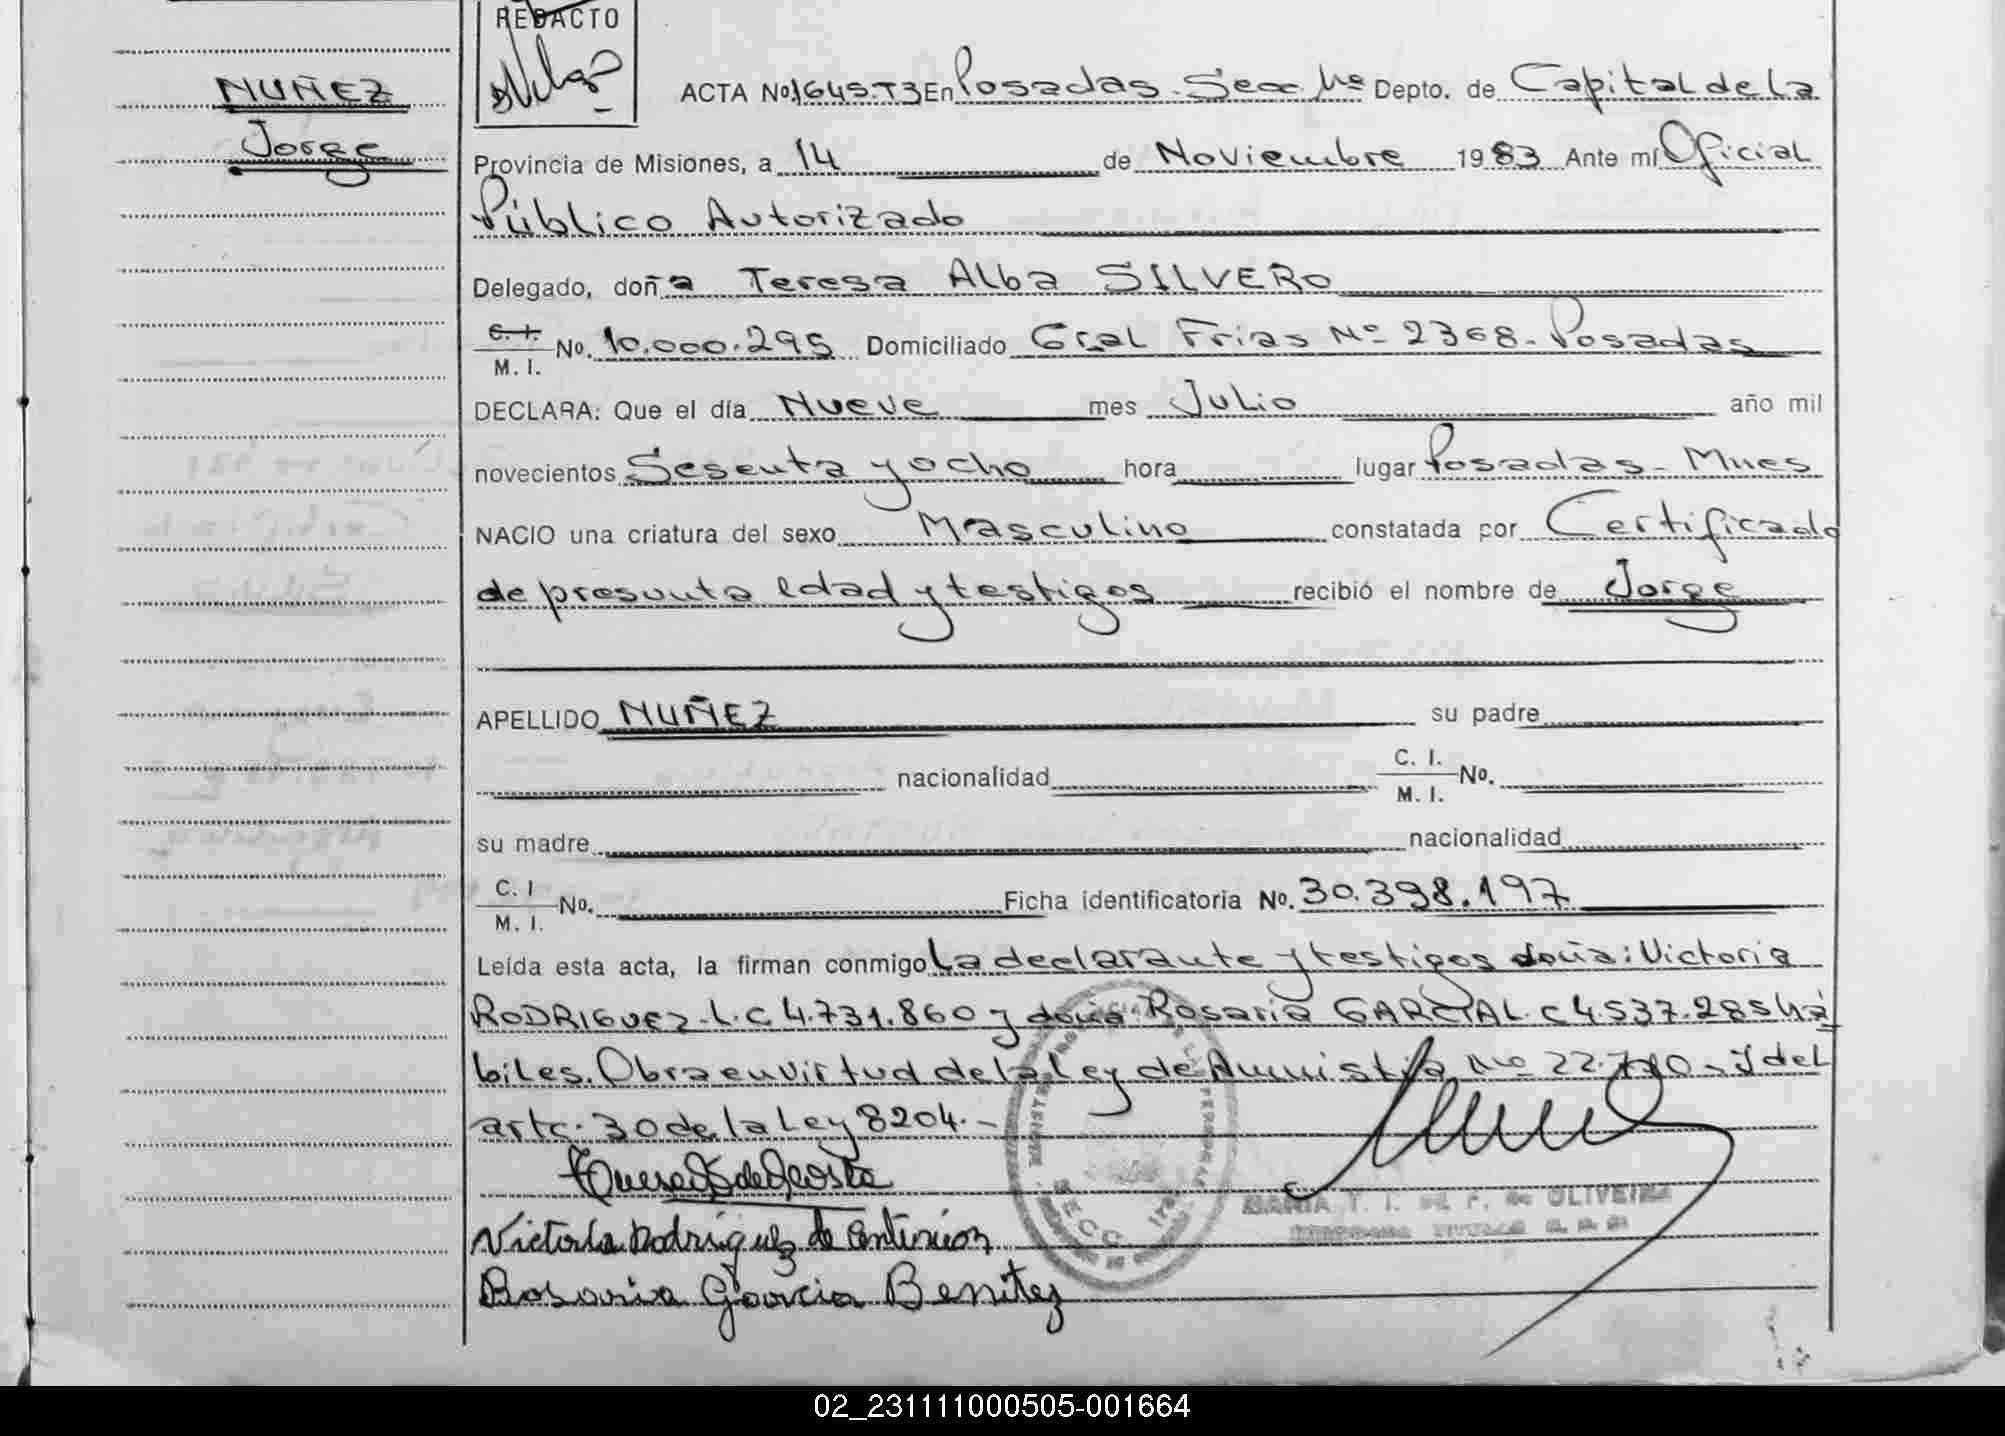 REDACTO
NUÑEZ
Jorge
ACTA No. 1645.T3 En Posadas. Secc 1ra Depto. de Capital de la
Provincia de Misiones, a 14 de Noviembre 1983 Ante mí Oficial
Público Autorizado
Delegado, doña Teresa Alba SILVERO
C. I.
M. I. No. 10.000.295 Domiciliado Gral Frias Nº 2368. Posadas
DECLARA: Que el día Nueve mes Julio año mil
novecientos Sesenta y ocho hora lugar Posadas - Mnes
NACIO una criatura del sexo Masculino constatada por Certificado
de presunta edad y testigos recibió el nombre de Jorge
APELLIDO NUÑEZ su padre
nacionalidad C. I.
M. I. No.
su madre nacionalidad
C. I
M. I. No. Ficha identificatoria No. 30.398.197
Leída esta acta, la firman conmigo La declarante y testigos doña: Victoria
RODRIGUEZ-L.C 4.731.860 y doña: Rosaria GARCIA L.C 4537.285 há
biles. Obra en virtud de la Ley de Amnistia Nº 22. y del
artc. 30 de la Ley 8204.-
Victoria Rodríguez de
Rosaria Garcia Benitez
MARIA T. I. de OLIVEIRA
02_231111000505-001664